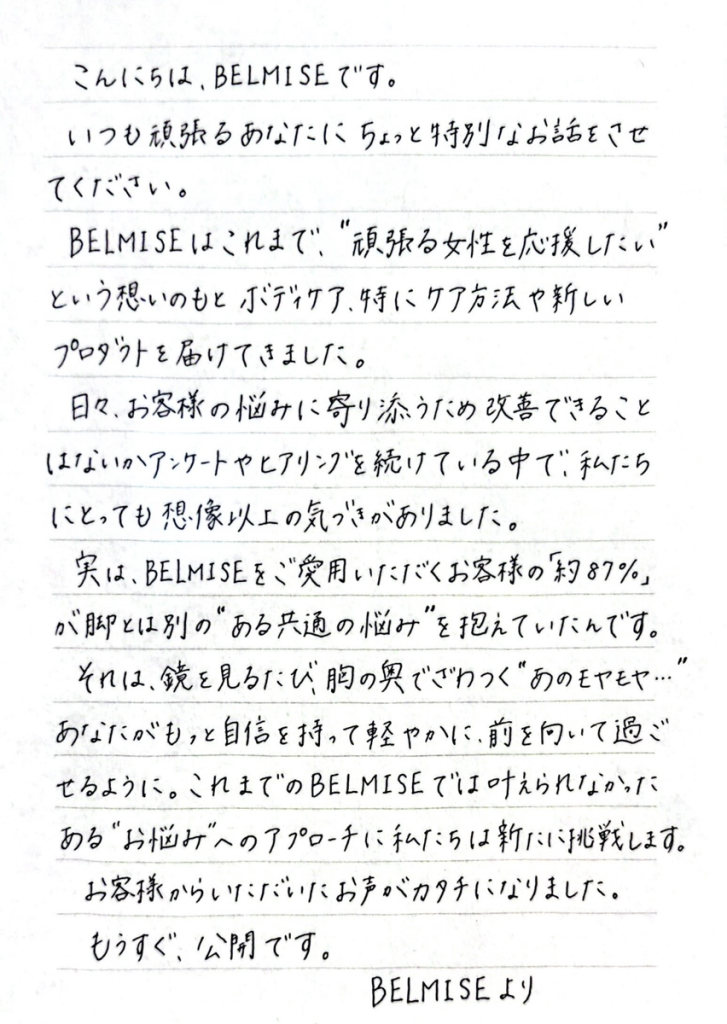 こんにちは、BELMISEです。
いつも頑張るあなたに ちょっと特別なお話をさせ
てください。
BELMISEはこれまで、"頑張る女性を応援したい"
という想いのもと ボディケア、特に ケア方法や新しい
プロダクトを届けてきました。
日々、お客様の悩みに寄り添うため改善できること
はないかアンケートやヒアリングを続けている中で、私たち
にとっても 想像以上の気づきがありました。
実は、BELMISEをご愛用いただくお客様の「約87%」
が脚とは別の"ある共通の悩み"を抱えていたんです。
それは、鏡を見るたび、胸の奥でざわつく"あのモヤモヤ…"
あなたがもっと自信を持って軽やかに、前を向いて過ご
せるように。これまでのBELMISEでは叶えられなかった
ある"お悩み"へのアプローチに私たちは新たに挑戦します。
お客様からいただいたお声がカタチになりました。
もうすぐ、公開です。
BELMISEより